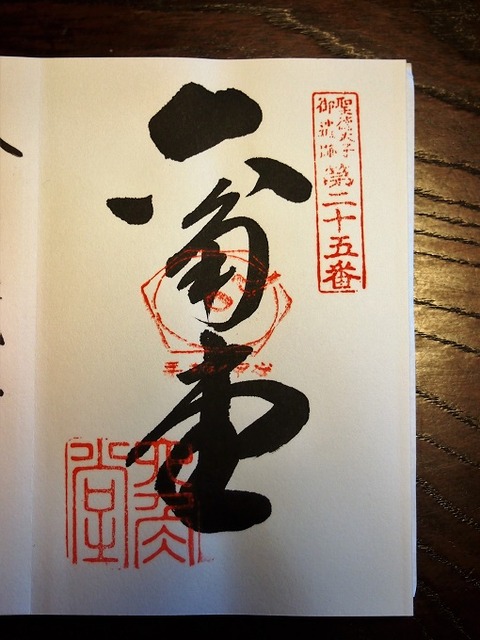 聖徳太子
御遺跡
第二十五番
六角堂
六角
堂